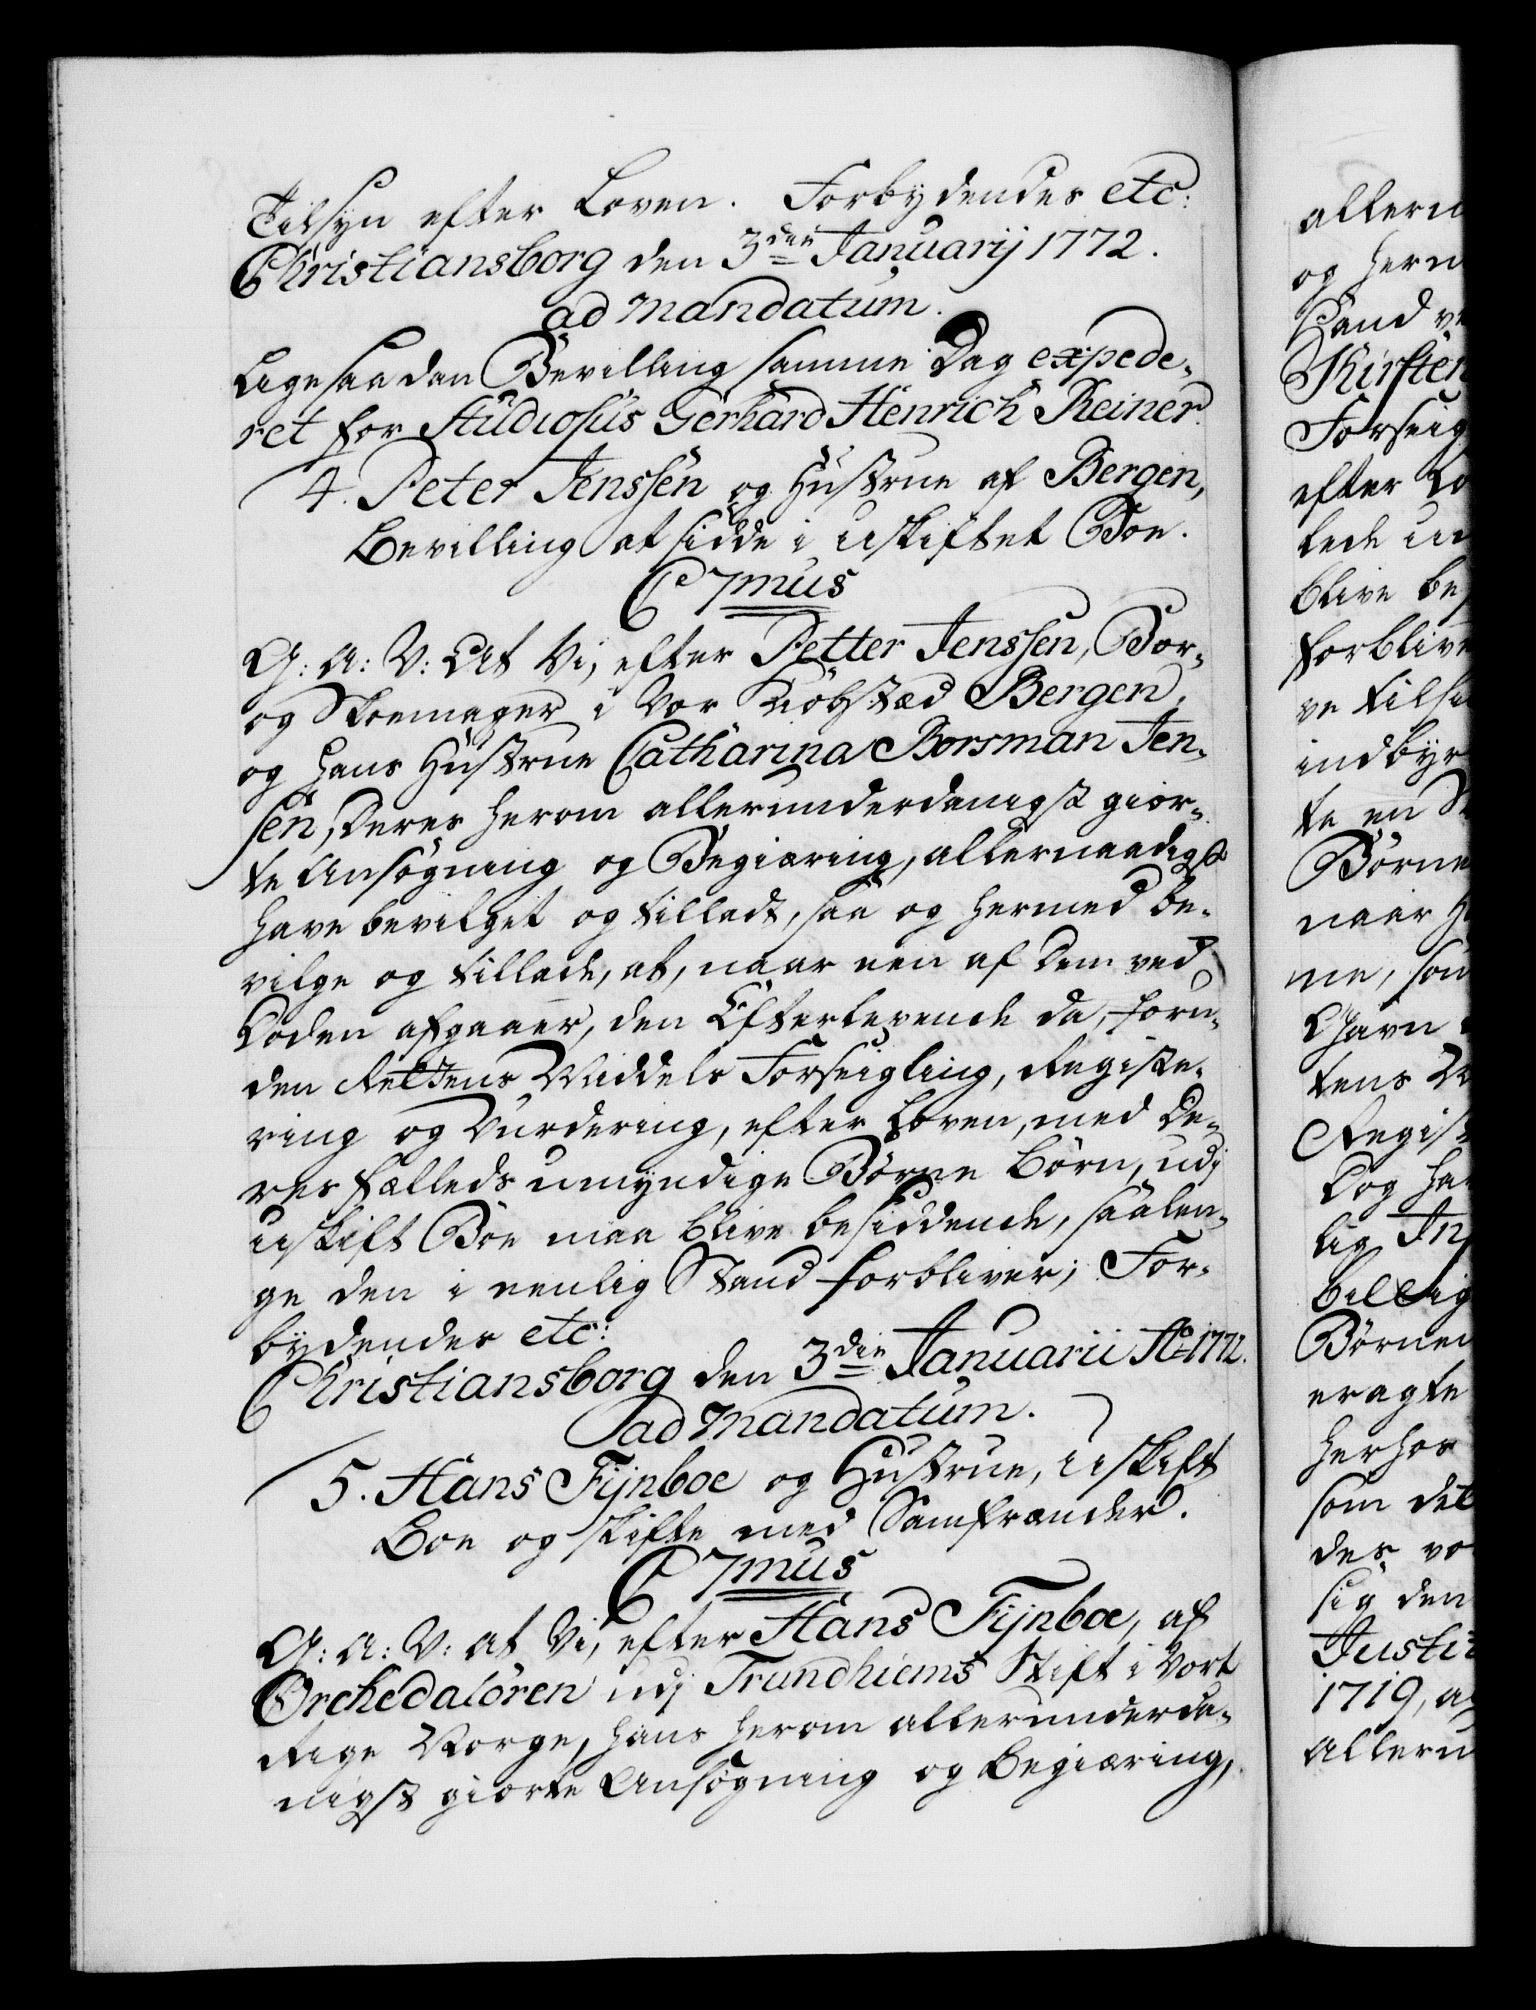 Tilsyn efter Loven. Forbydendes etc:
Christiansborg den 3den Januarij 1772.
ad mandatum.
Ligesaadan Bevilling samme Dag expede-
ret for Studiosus Gerhard Henrich Reiner.
4. Peter Jenssen og Hustrue af Bergen,
Bevilling at sidde i uskiftet Boe.
C 7mus
G: A: V: At Vi, efter Petter Jenssen, Bor-
og Skoemager i Vor Kiøbstæd Bergen,
og hans Hustrue Catharina Borsman Jen-
sen, Deres herom allerunderdanigst gior-
te Ansøgning og Begiæring, allernaadigst
have bevilget og tilladt, saa og hermed be-
vilge og tillade, at, naar een af Dem ved
Døden afgaaer, den Efterlevende da, foru-
den Rettens Middels Forseigling, Registe-
ring og Vurdering, efter Loven, med De-
res fælleds umyndige Børne Børn, udj
uskift Boe maa blive besiddende, saalen-
ge den i eenlig Stand forbliver; For-
bydendes etc:
Christiansborg den 3die Januarii Ao 1772.
ad mandatum.
5. Hans Fijnboe og Hustrue, uskift
Boe og skifte med Samfrænder.
C 7mus
G: A: V: at Vi, efter Hans Fijnboe, af
Orchedaløren udj Trundhiems Stift i Vort
Rige Norge, hans herom allerunderda-
nigst giorte Ansøgning og Begiæring,
allern
og herm
Kirsten
Forseig
efter Lo
blive be
forblive
indbyr
te en
Børne
naar
ne, som
tens
Regist
Dog ha
lig In
billig
Børnen
eragte
herhos
som det
des vo
sig den
Justit
1719, a
allern